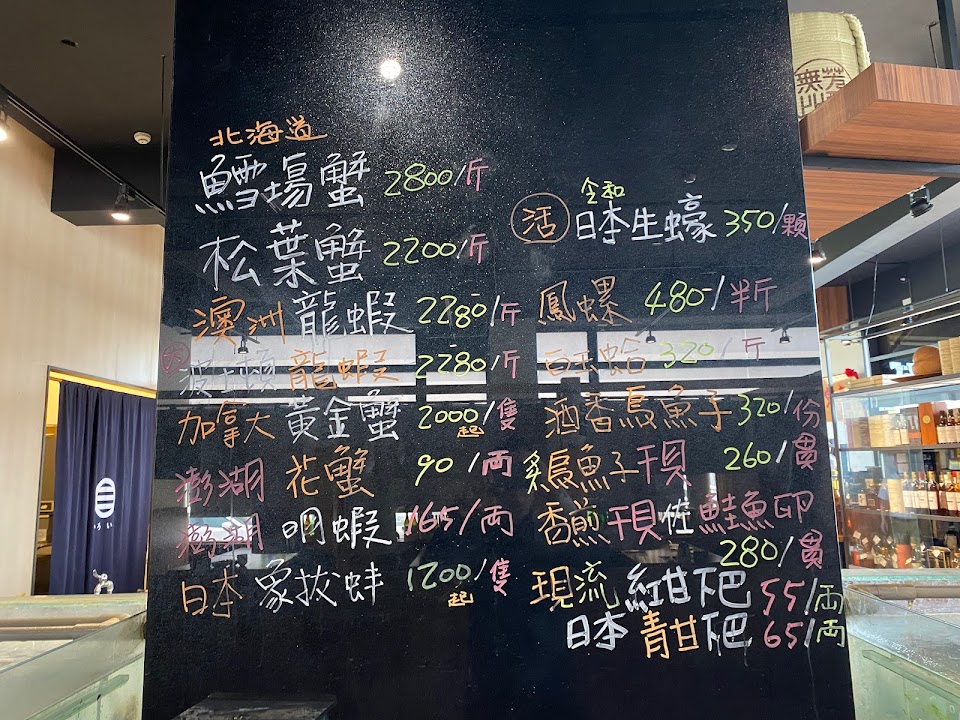 北海道
鱈場蟹 2800/斤
松葉蟹 2200/斤
澳洲 龍蝦 2280/斤
波士頓 龍蝦 2280/斤
加拿大 黃金蟹 2000/隻
起
澎湖 花蟹 90/両
澎湖 明蝦 165/両
日本 象拔蚌 1200/隻
起
令和
活 日本生蠔 350/顆
鳳螺 480-/半斤
白玉蛤 320/斤
酒香烏魚子 320/份
烏魚子干貝 260/貫
香煎干貝佐鮭魚卵
280/貫
現流 紅甘下巴 55/両
日本 青甘下巴 65/両
無芳